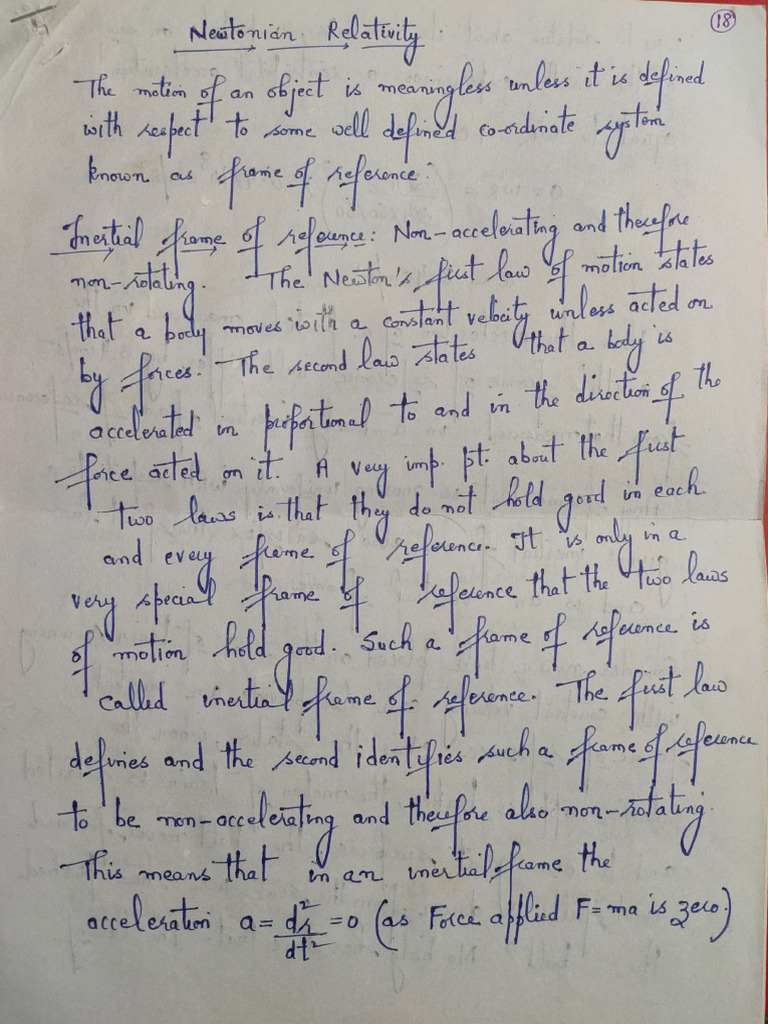 18
Newtonian Relativity
The motion of an object is meaningless unless it is defined
with respect to some well defined co-ordinate system
known as frame of reference.
Inertial frame of reference: Non-accelerating and therefore
non-rotating. The Newton's first law of motion states
that a body moves with a constant velocity unless acted on
by forces. The second law states that a body is
accelerated in proportional to and in the direction of the
force acted on it. A very imp. pt. about the first
two laws is that they do not hold good in each
and every frame of reference. It is only in a
very special frame of reference that the two laws
of motion hold good. Such a frame of reference is
called inertial frame of reference. The first law
defines and the second identifies such a frame of reference
to be non-accelerating and therefore also non-rotating.
This means that in an inertial frame the
acceleration a = d²r/dt² = 0 (as Force applied F = ma is zero.)